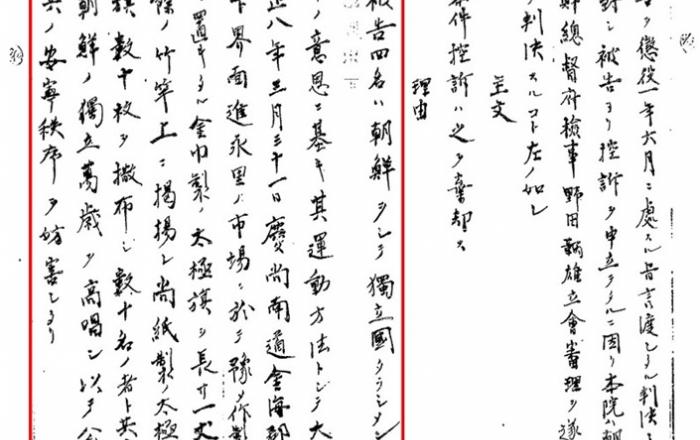 告ヲ懲役一年六月ニ處スル旨言渡シタル判決
對シ被告ヨリ控訴ヲ申立タルニ因リ本院ハ朝
鮮總督府檢事野田鞆雄立會審理ヲ遂
判決スルコト左ノ如シ
主文
本件控訴ハ之ヲ棄却ス
理由
被告四名ハ朝鮮ヲシテ獨立國タラシメン
ノ意思ニ基キ其運動方法トシテ大
正八年三月三十一日慶尚南道金海郡
下界面進永里ノ市場ニ於テ豫メ作製
シ置キタル金巾製ノ太極旗ヲ長サ一丈
餘ノ竹竿上ニ揭揚シ尚紙製ノ太極
旗數十枚ヲ撒布シ數十名ノ者ト共
朝鮮ノ獨立萬歲ヲ高唱シ以テ公
共ノ安寧秩序ヲ妨害シタリ